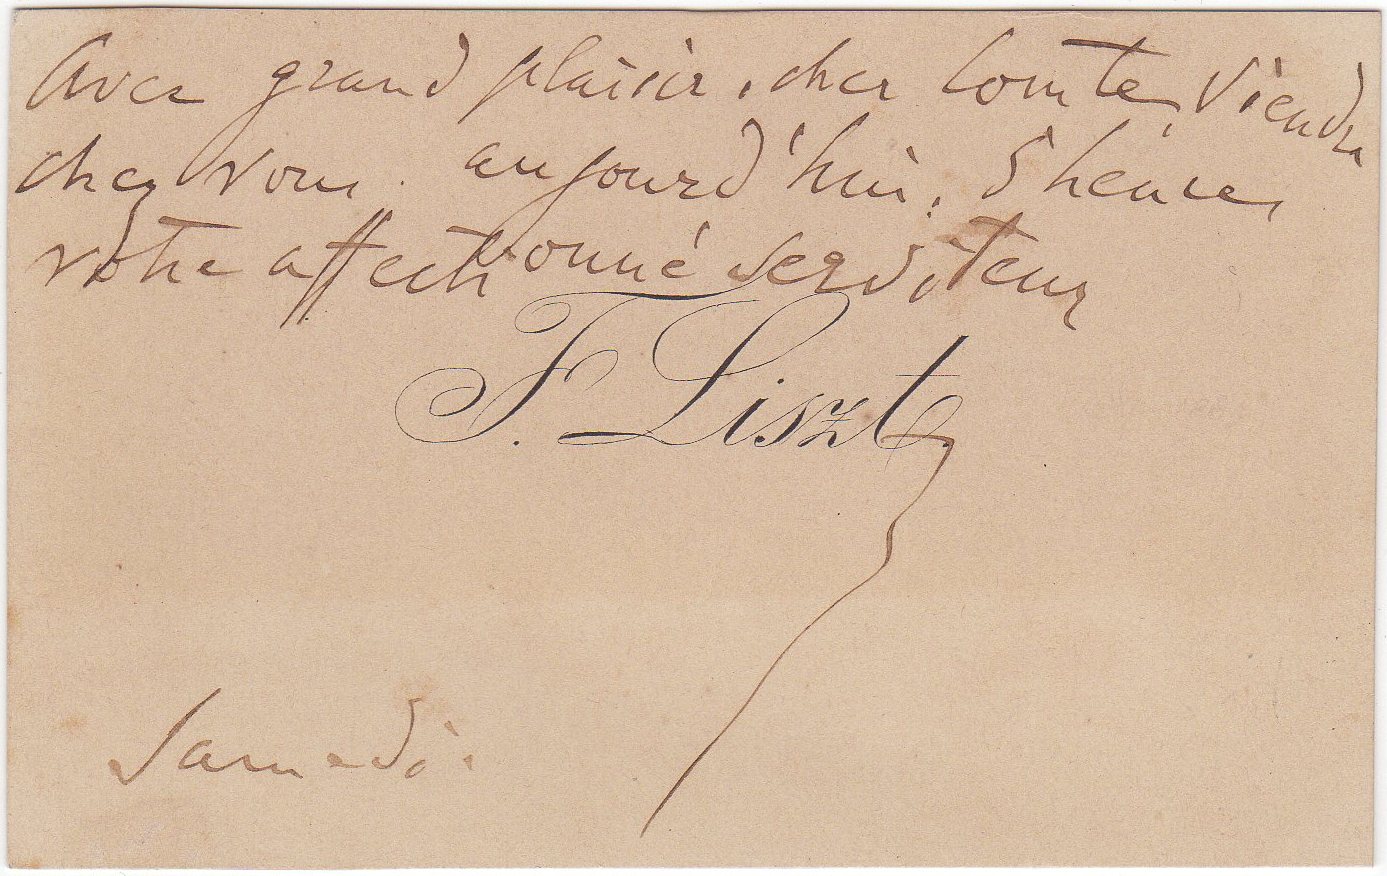 Avec grand plaisir, cher Comte, viendrai
chez vous aujourd'hui, 5 heures,
votre affectionné serviteur
F. Liszt
Samedi.